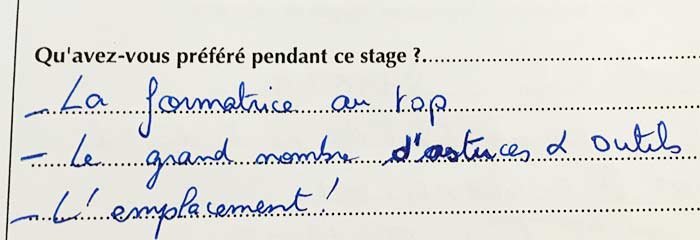 Qu'avez-vous préféré pendant ce stage ?
- La formatrice au top
- Le grand nombre d'astuces & outils
- L'emplacement !